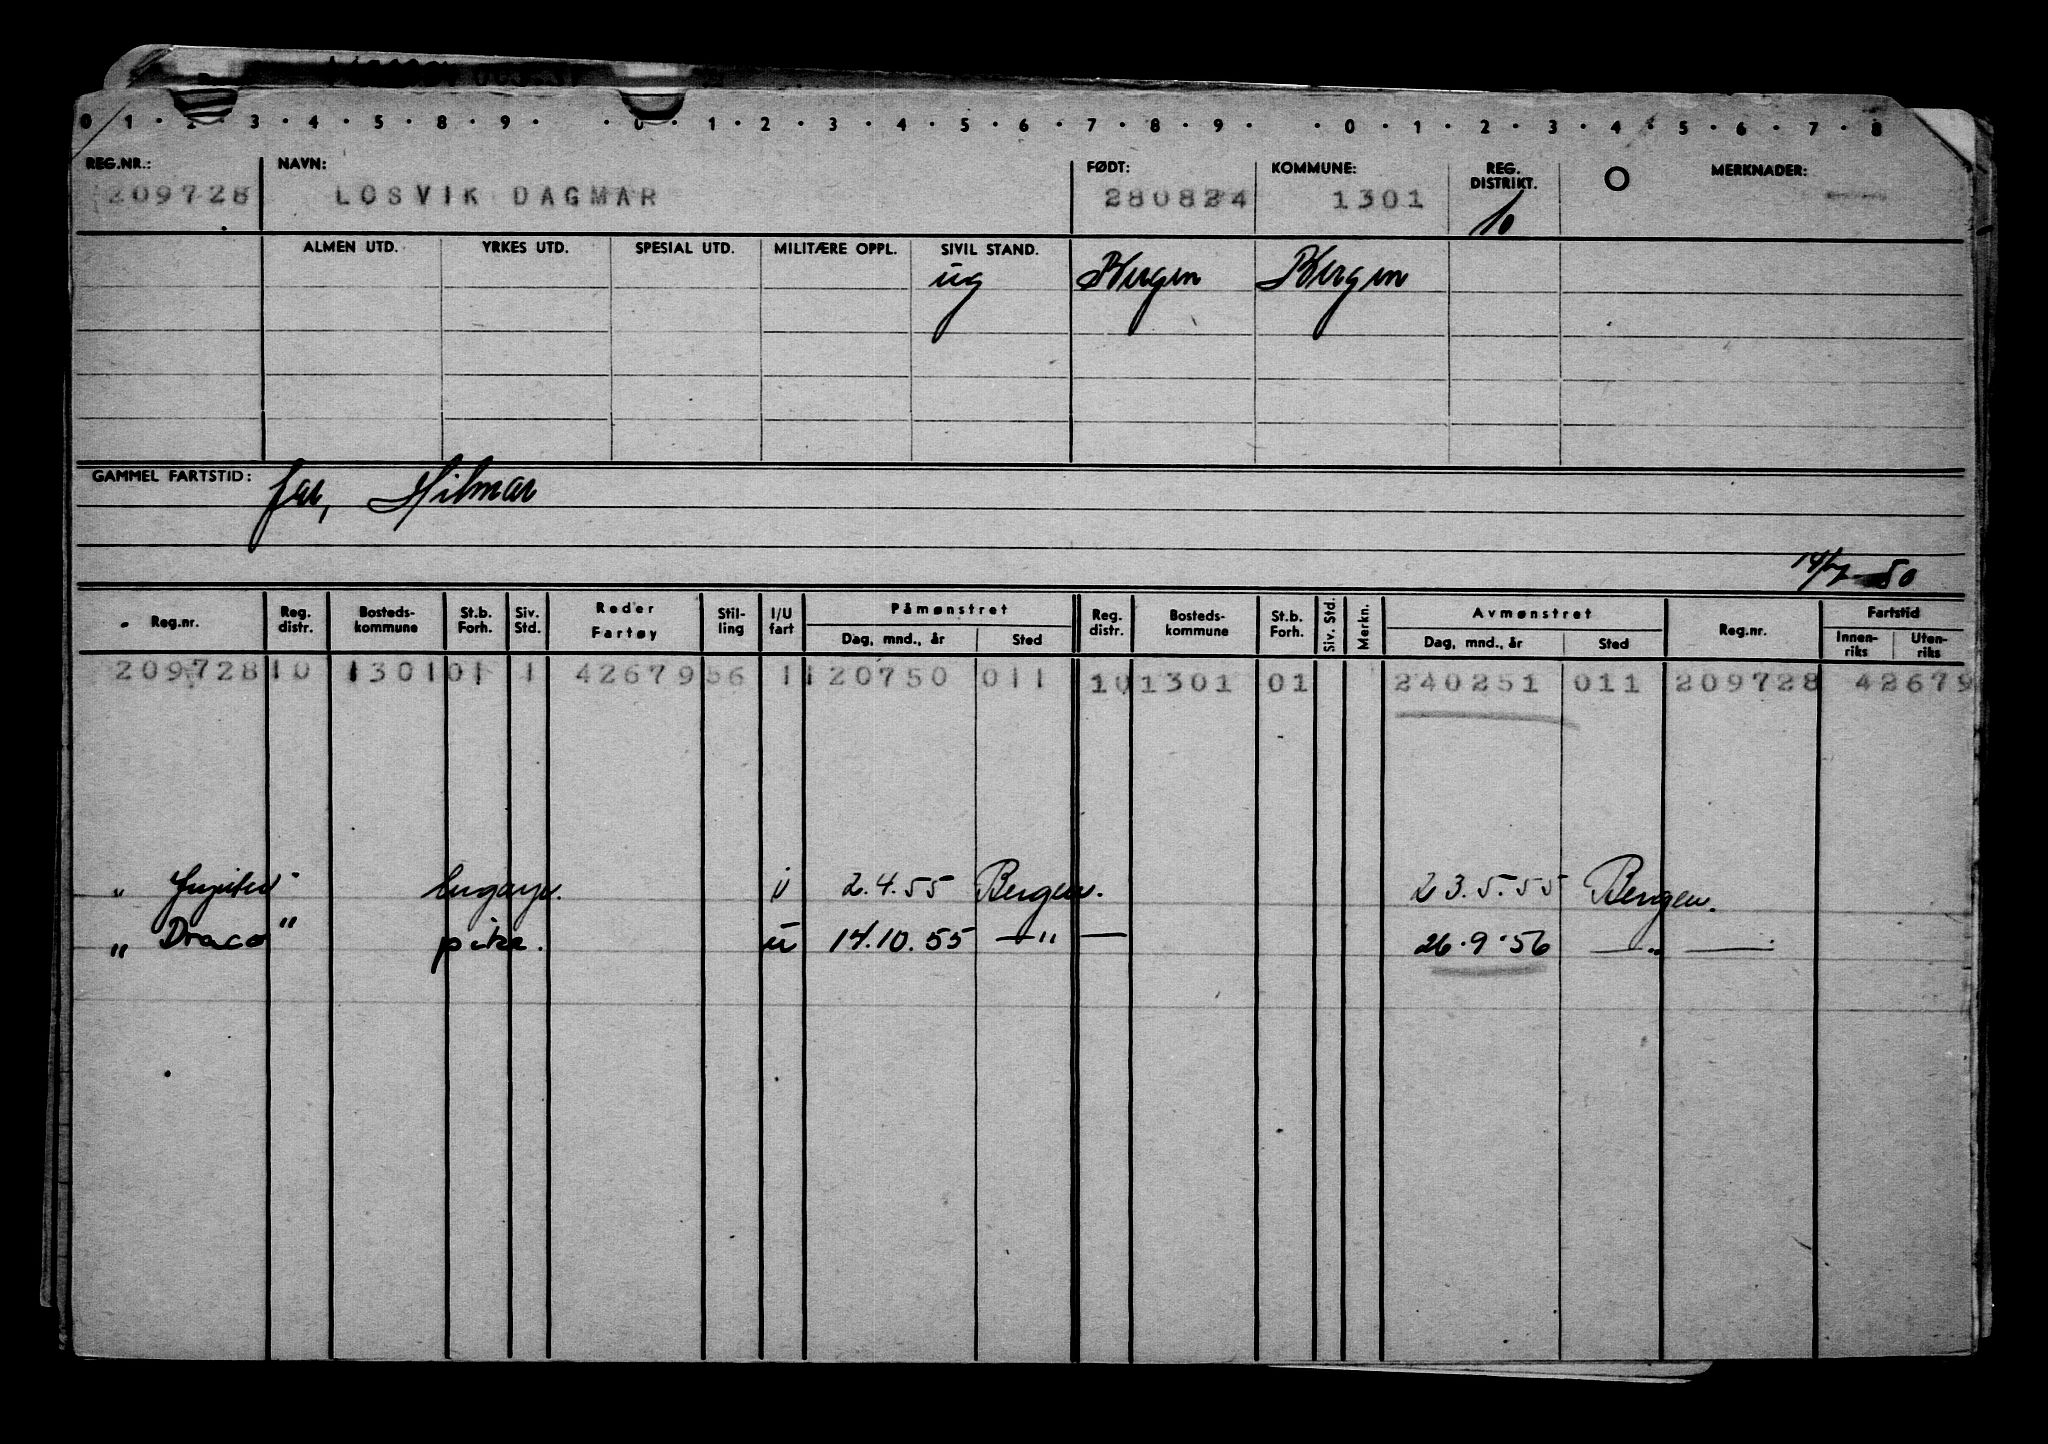 0 · 1 · 2 · 3 · 4 · 5 · 8 · 9 · · 0 · 1 · 2 · 3 · 4 · 5 · 6 · 7 · 8 · 9 · · 0 · 1 · 2 · 3 · 4 · 5 · 6 · 7 · 8
REG.NR.: NAVN: FØDT: KOMMUNE: REG. DISTRIKT. O MERKNADER:
209728 LOSVIK DAGMAR 280824 1301 10
ALMEN UTD. YRKES UTD. SPESIAL UTD. MILITÆRE OPPL. SIVIL STAND.
ug Bergen Bergen
GAMMEL FARTSTID: far, Hilmar
50
Reg.nr. Reg. distr. Bosteds- kommune St.b. Forh. Siv. Std. Reder Fartøy Stil- ling I/U fart Påmønstret Dag, mnd., år Sted Reg. distr. Bosteds- kommune St.b. Forh. Siv. Std. Merkn. Avmønstret Dag, mnd., år Sted Reg.nr. Fartstid Innen- riks Uten- riks
209728 10 1301 01 1 42679 56 1 120750 011 10 1301 01 240251 011 209728 42679
" Jupiter" lugarp. ü 2.4.55 Bergen. 23.5.55 Bergen.
" Draco" pike. ü 14.10.55 —"— 26.9.56 —"—